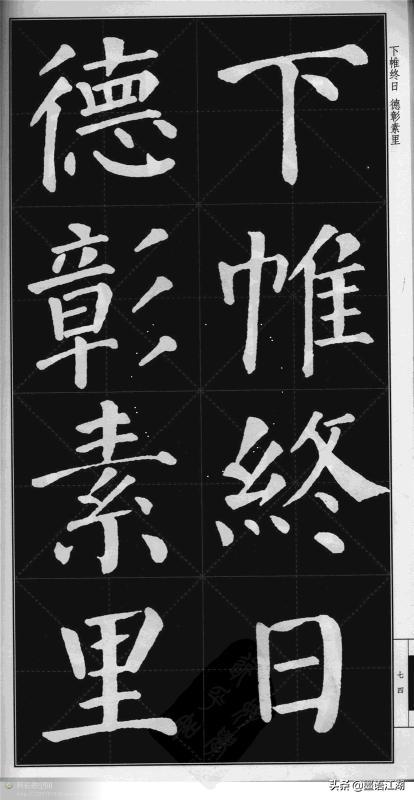 下帷终日 德彰素里
下帷終日
德彰素里
七四
头条@墨语江湖